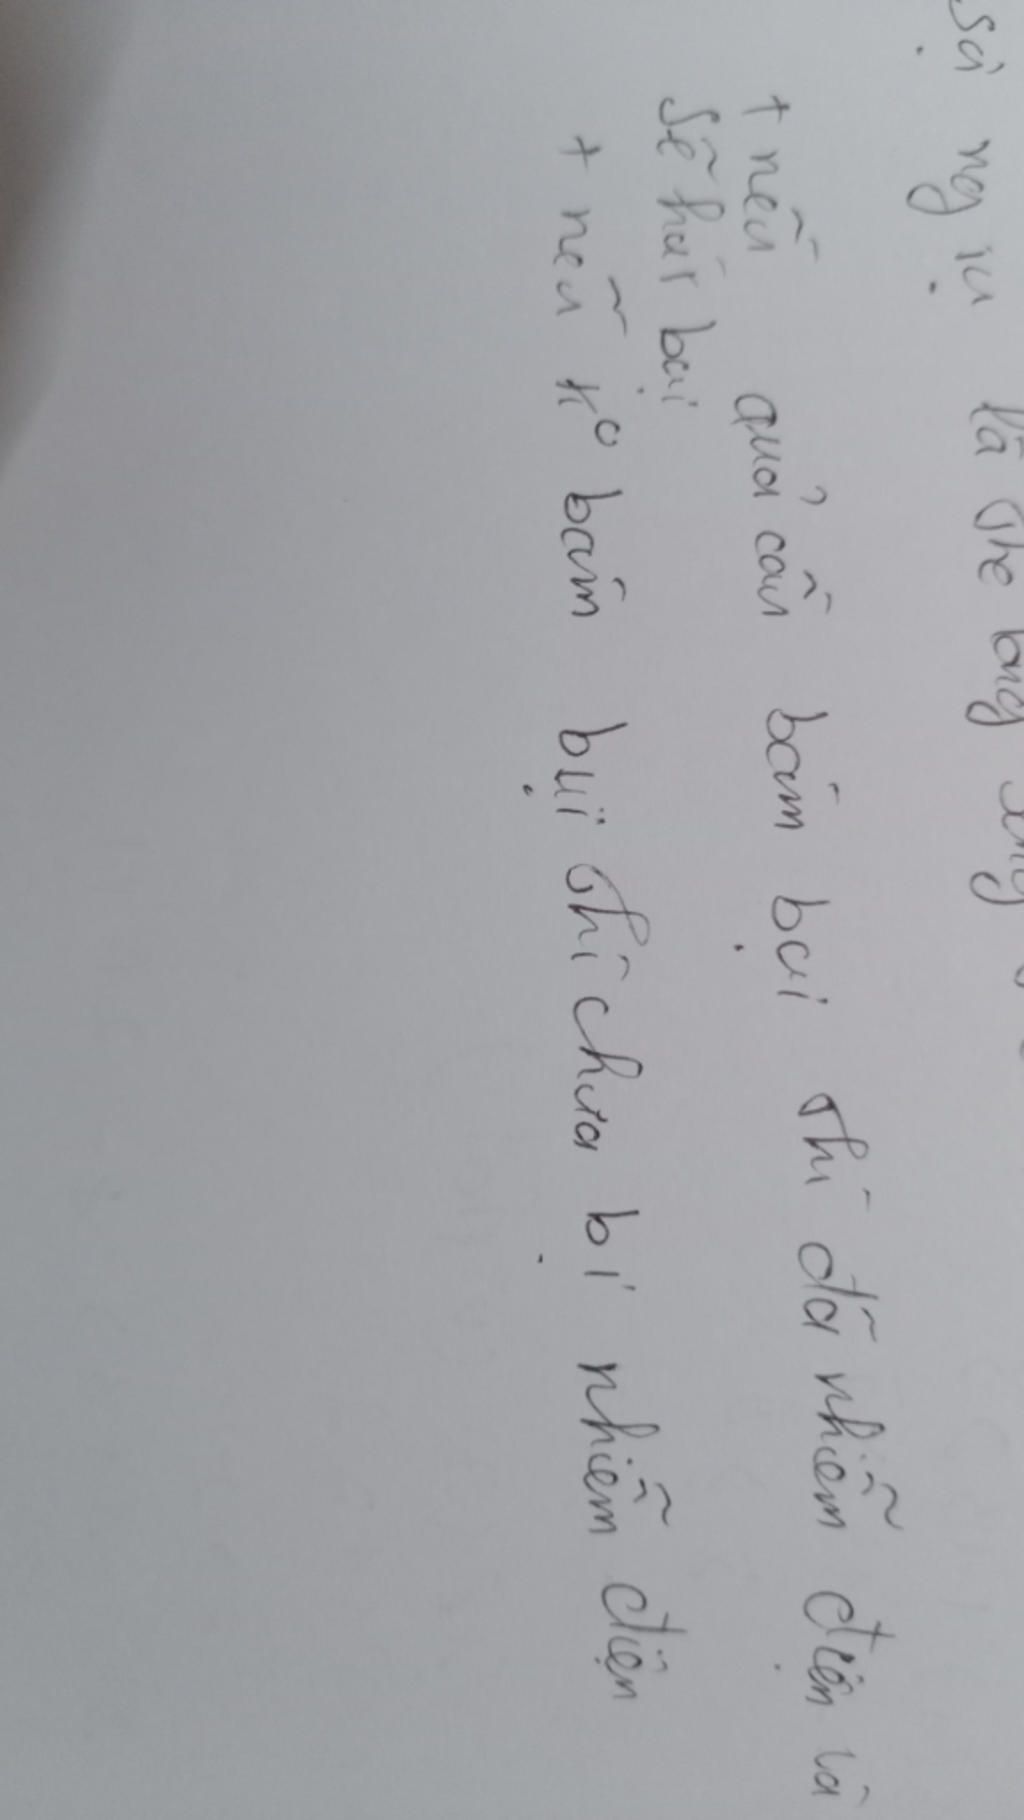 sự ng iu là the long
+ nếu quả cầu bám bại thì đã nhiễm điện và
sẽ hút bại
+ nếu ko bám bụi thì chưa bị nhiễm điện